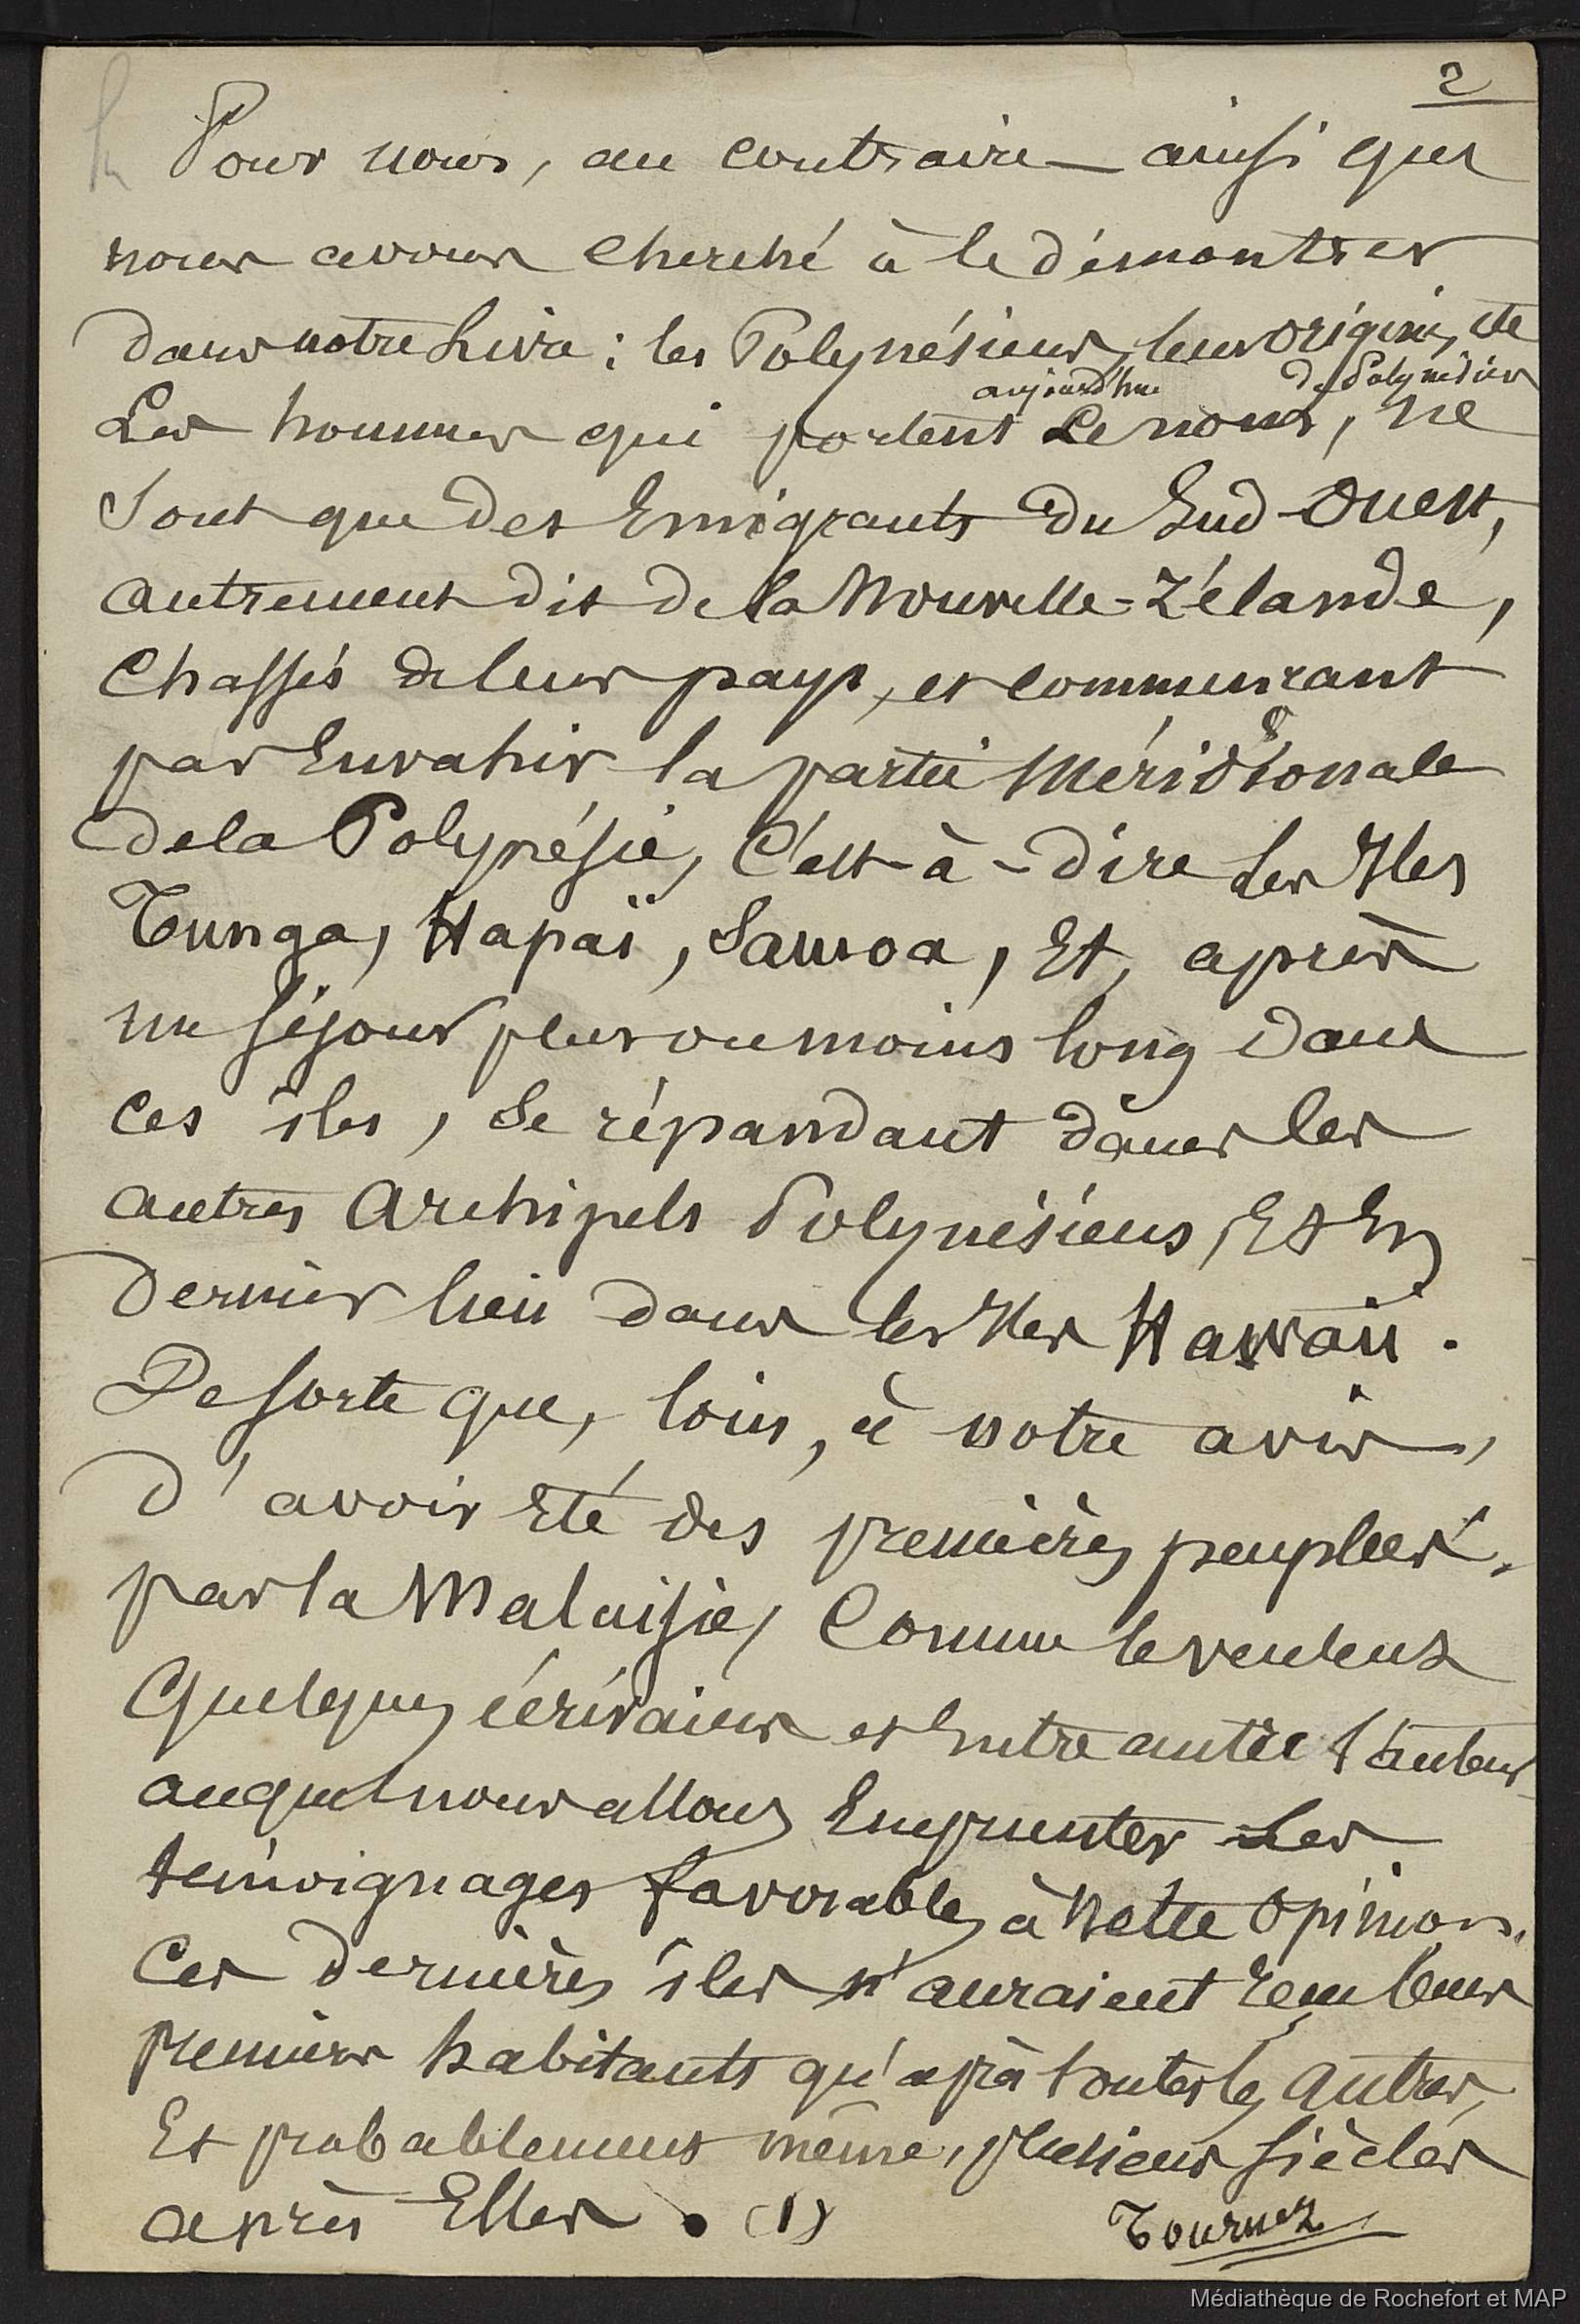 2
Pour nous, au contraire ainsi que
nous avons cherché à le démontrer
dans notre Livre : les Polynésiens, leur origine, etc
aujourd'hui de Polynésien
Les hommes qui portent le nom, ne
sont que des Emigrants du Sud-Ouest,
autrement dit de la Nouvelle-Zélande,
Chassés de leur pays, et commençant
par Envahir la partie Méridionale
de la Polynésie, C'est-à-dire les Iles
Tunga, Hapaï, Samoa, Et, après
un séjour plus ou moins long dans
ces îles, se répandant dans les
autres Archipels Polynésiens, Et En
dernier lieu dans les Iles Hawaii.
De sorte que, loin, à notre avis,
d'avoir été des premières peuplées,
par la Malaisie, Comme le veulent
Quelques écrivains et Entre autre l'auteur
auquel nous allons Emprunter Les
temoignages favorables à Notre Opinion,
Ces dernières îles n'auraient reçu leurs
premiers habitants qu'après toutes les autres,
Et probablement même, plusieurs siècles
après Elles. (1)
Tournez
Médiathèque de Rochefort et MAP